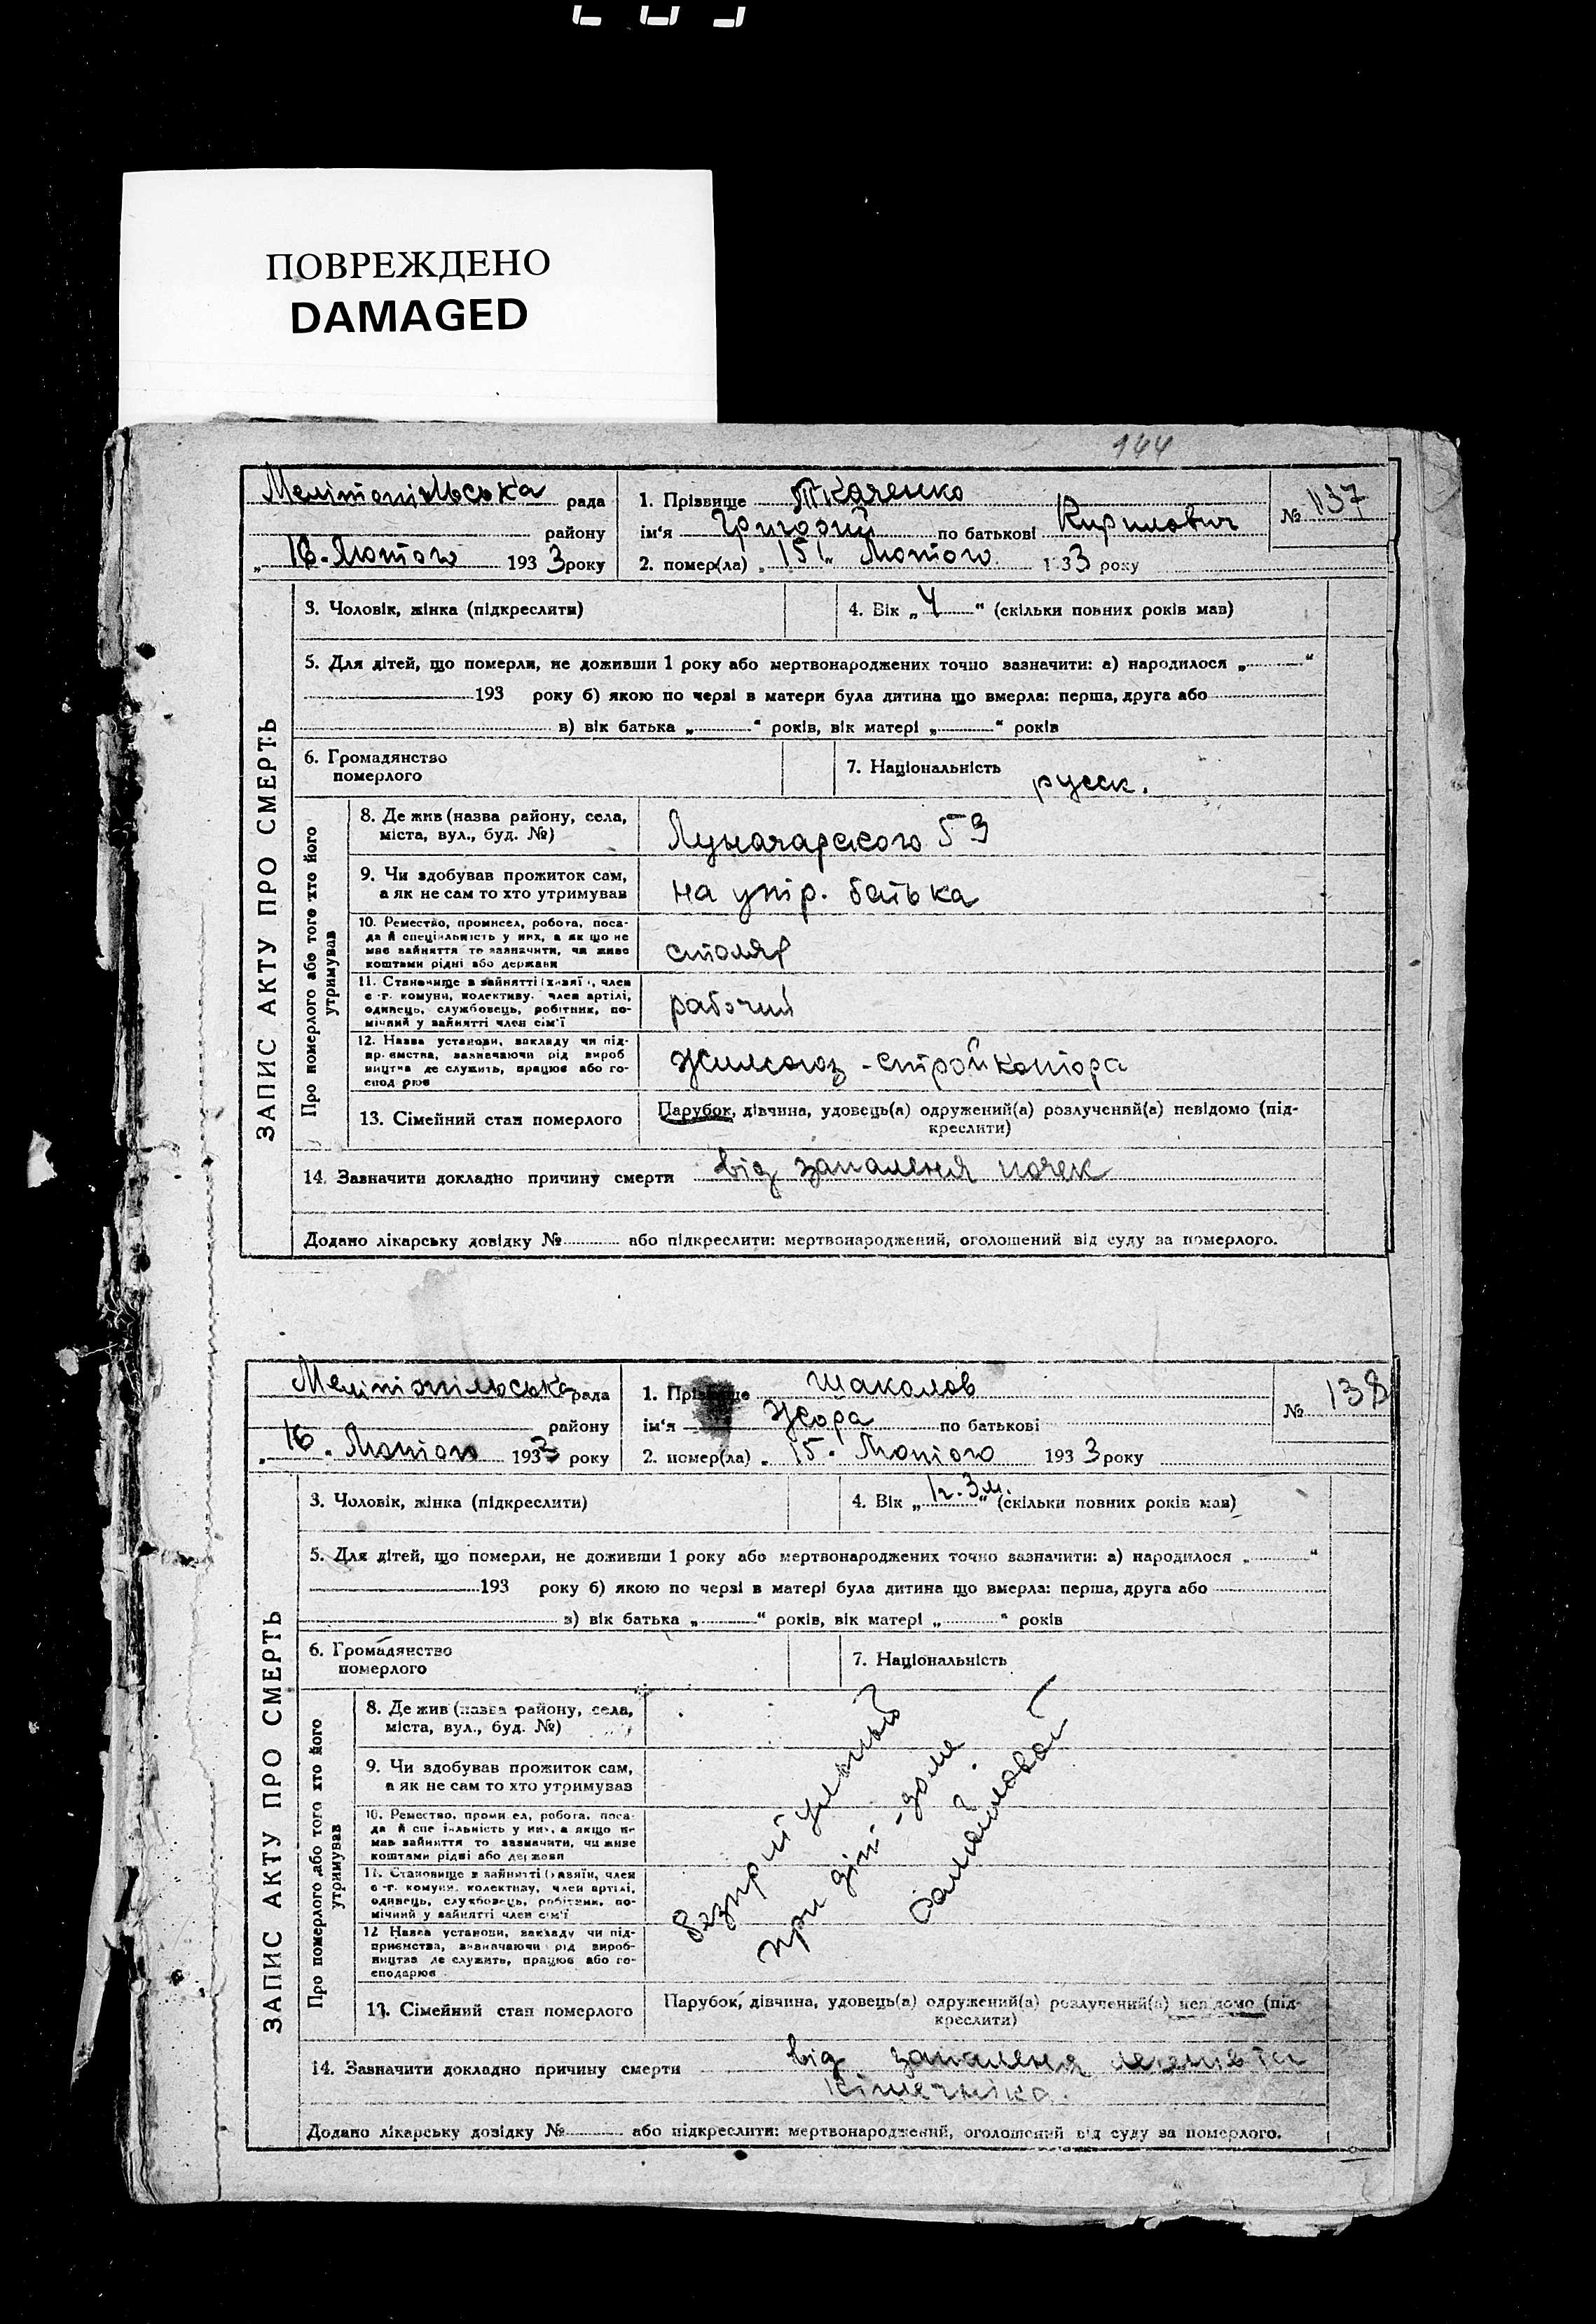 ПОВРЕЖДЕНО
DAMAGED
144
Мелітопільська рада
району
„ 16 „ Лютого 1933 року
1. Прізвище Ткаченко
ім‘я Григорий по батькові Кирилович
2. помер(ла) „ 15 „ Лютого 1 33 року
№ 137
ЗАПИС АКТУ ПРО СМЕРТЬ
3. Чоловік, жінка (підкреслити)
4. Вік „ 4 “ (скільки повних років мав)
5. Для дітей, що померли, не доживши 1 року або мертвонароджених точно зазначити: а) народилося „ “
193 року б) якою по черзі в матери була дитина що вмерла: перша, друга або
в) вік батька „ “ років, вік матері „ “ років
6. Громадянство
померлого
7. Національність русск.
Про померлого або того хто його
утримував
8. Де жив (назва району, села,
міста, вул., буд. №)
Луначарского 53
9. Чи здобував прожиток сам,
а як не сам то хто утримував
на утр. батька
10. Ремество, промисел, робота, поса-
да й спеціяльність у них, а як що не
має зайняття то зазначити, чи живе
коштами рідні або держави
столяр
11. Становище в зайнятті (хазяї , член
с.-г. комуни, колективу, член артілі,
одинець, службовець, робітник, по-
мічний у зайнятті член сім'ї
рабочий
12. Назва установи, закладу чи під-
пр.ємства, зазначаючи рід вироб
ництва де служить, працює або го-
спод рює
Жилсоюз - стройконтора
13. Сімейний стан померлого
Парубок, дівчина, удовець(а) одружений(а) розлучений(а) невідомо (під-
креслити)
14. Зазначити докладно причину смерти від запаленя почек
Додано лікарську довідку № або підкреслити: мертвонароджений, оголошений від суду за померлого.
Мелітопільська рада
району
„ 16 „ Лютого 1933 року
1. Прізвище Шаколов
ім‘я Жора по батькові
2. помер(ла) „ 15 „ Лютого 1933 року
№ 138
ЗАПИС АКТУ ПРО СМЕРТЬ
3. Чоловік, жінка (підкреслити)
4. Вік „ 1г. 3м. “ (скільки повних років мав)
5. Для дітей, що померли, не доживши 1 року або мертвонароджених точно зазначити: а) народилося „ “
193 року б) якою по черзі в матері була дитина що вмерла: перша, друга або
в) вік батька „ “ років, вік матері „ “ років
6. Громадянство
померлого
7. Національність
Про померлого або того хто його
утримував
8. Де жив (назва району, села,
міста, вул., буд. №)
9. Чи здобував прожиток сам,
а як не сам то хто утримував
10. Ремество, проми ел, робота, поса-
да й спе іяльність у них, а якщо не
має зайняття то зазначити, чи живе
коштами рідні або держави
11. Становище в зайнятті (хазяїн, член
с.-г. комуни, колективу, член артілі,
одинець, службовець, робітник, по-
мічний у зайнятті член сім'ї
12 Назва установи, закладу чи під-
приємства, зазначаючи рід вироб-
ництва де служить, працює або го-
сподарює
безпритульный
при діт-доме
13. Сімейний стан померлого
Парубок, дівчина, удовець(а) одружений(а) розлучений(а) невідомо (під-
креслити)
14. Зазначити докладно причину смерти від запаленя легенів та
кішечніка.
Додано лікарську довідку № або підкреслити: мертвонароджений, оголошений від суду за померлого.